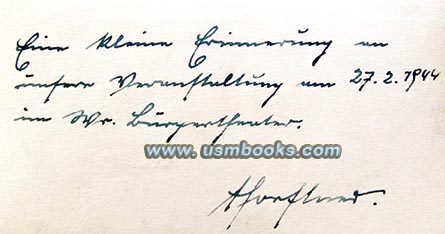 Eine kleine Erinnerung an
unsere Veranstaltung am 27.2.1944
im Wr. Bürgertheater.
www.usmbooks.com